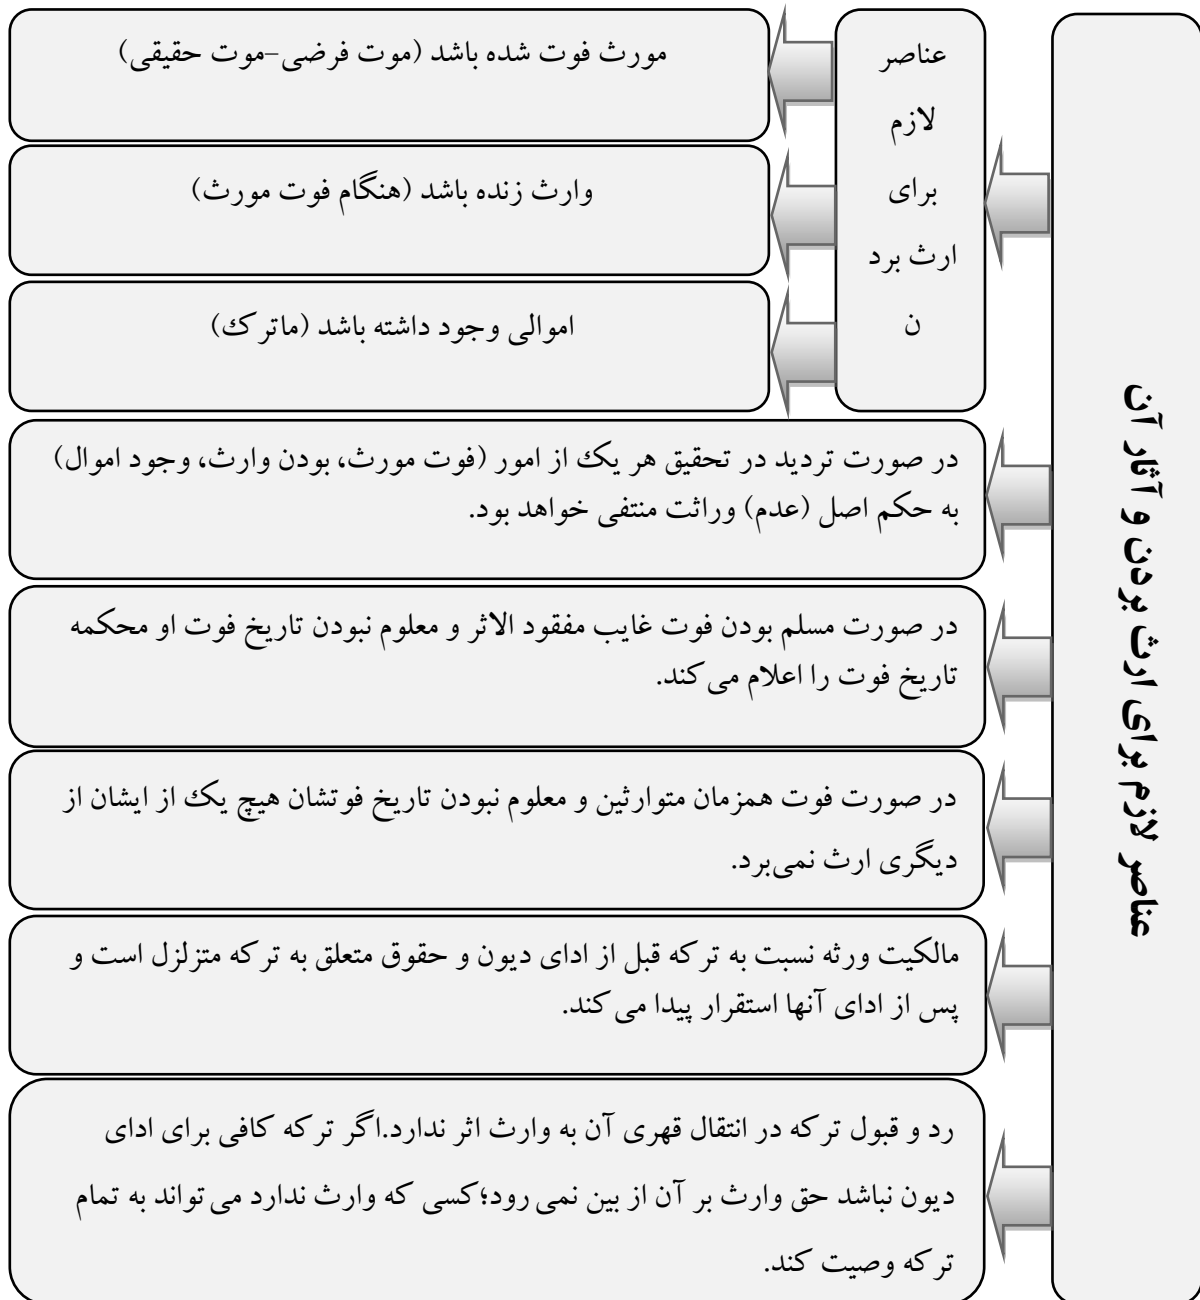 عناصر لازم برای ارث بردن و آثار آن
عناصر
لازم
برای
ارث برد
ن
مورث فوت شده باشد (موت فرضی-موت حقیقی)
وارث زنده باشد (هنگام فوت مورث)
اموالی وجود داشته باشد (ماترک)
در صورت تردید در تحقیق هر یک از امور (فوت مورث، بودن وارث، وجود اموال)
به حکم اصل (عدم) وراثت منتفی خواهد بود.
در صورت مسلم بودن فوت غایب مفقود الاثر و معلوم نبودن تاریخ فوت او محکمه
تاریخ فوت را اعلام می‌کند.
در صورت فوت همزمان متوارثین و معلوم نبودن تاریخ فوتشان هیچ یک از ایشان از
دیگری ارث نمی‌برد.
مالکیت ورثه نسبت به ترکه قبل از ادای دیون و حقوق متعلق به ترکه متزلزل است و
پس از ادای آنها استقرار پیدا می‌کند.
رد و قبول ترکه در انتقال قهری آن به وارث اثر ندارد.اگر ترکه کافی برای ادای
دیون نباشد حق وارث بر آن از بین نمی رود؛کسی که وارث ندارد می تواند به تمام
ترکه وصیت کند.